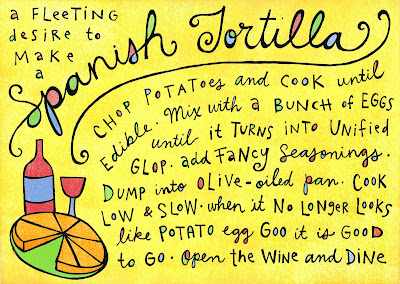 a FLeeTING
desire to
Make
a
Spanish Tortilla
CHOP POTAToes and COOK until
Edible. Mix with a BUNCH of EGGS
until it TURNS INTO UNified
GLOP. add FaNCy Seasonings.
DUMP into OLive-oiled pan. COOK
LOW & SLOW. when it No LONGeR LOOKS
like POTATO egg Goo it is GOOD
to GO. Open the WINE and DiNe